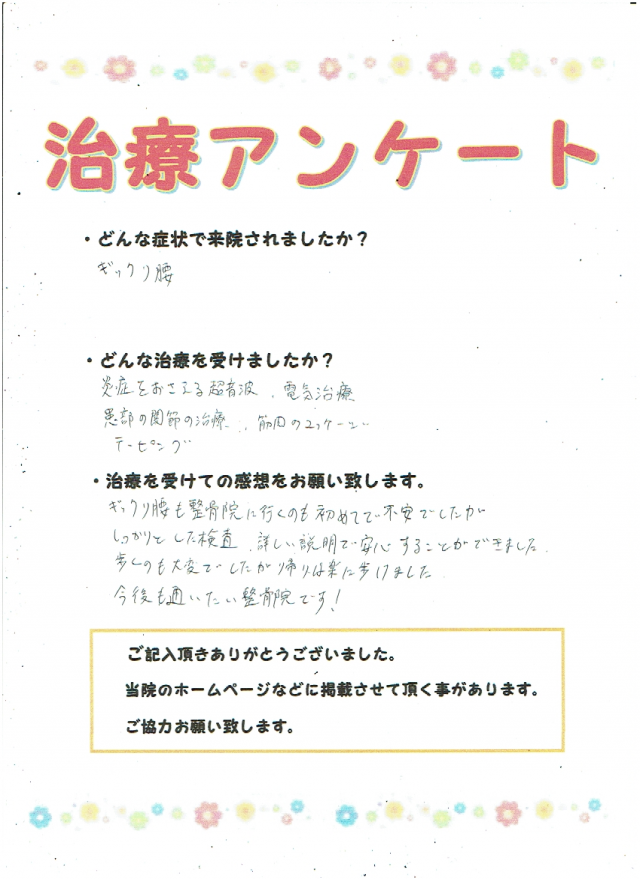 治療アンケート
・どんな症状で来院されましたか？
ギックリ腰
・どんな治療を受けましたか？
炎症をおさえる超音波、電気治療
患部の関節の治療、筋肉のマッサージ
テーピング
・治療を受けての感想をお願い致します。
ギックリ腰も整骨院に行くのも初めてで不安でしたが
しっかりとした検査、詳しい説明で安心することができました。
歩くのも大変でしたが帰りは楽に歩けました
今後も通いたい整骨院です！
ご記入頂きありがとうございました。
当院のホームページなどに掲載させて頂く事があります。
ご協力お願い致します。